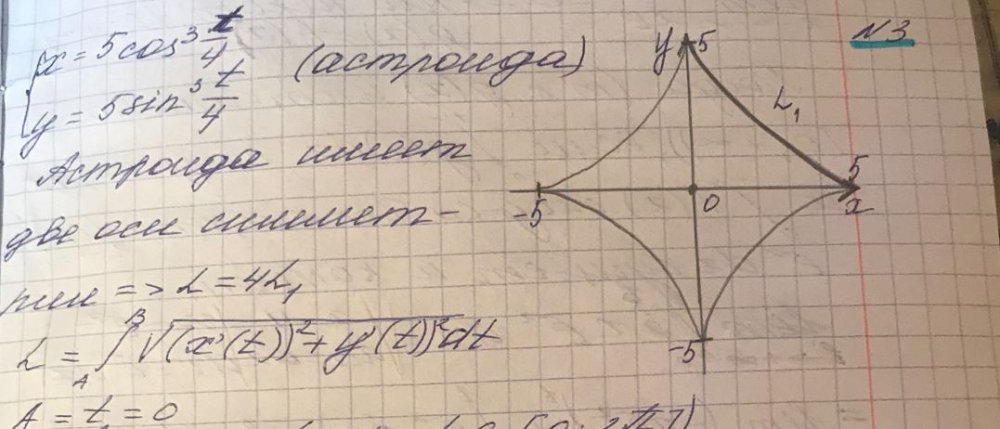 N3
{x = 5cos³ t/4
{y = 5sin³ t/4
(астроида)
Астроида имеет
две оси симмет-
рии => L = 4L₁
L = ∫ᴀᴮ √(x'(t))² + y'(t))² dt
A = t₁ = 0
y 5
L₁
5
-5 0 x
-5